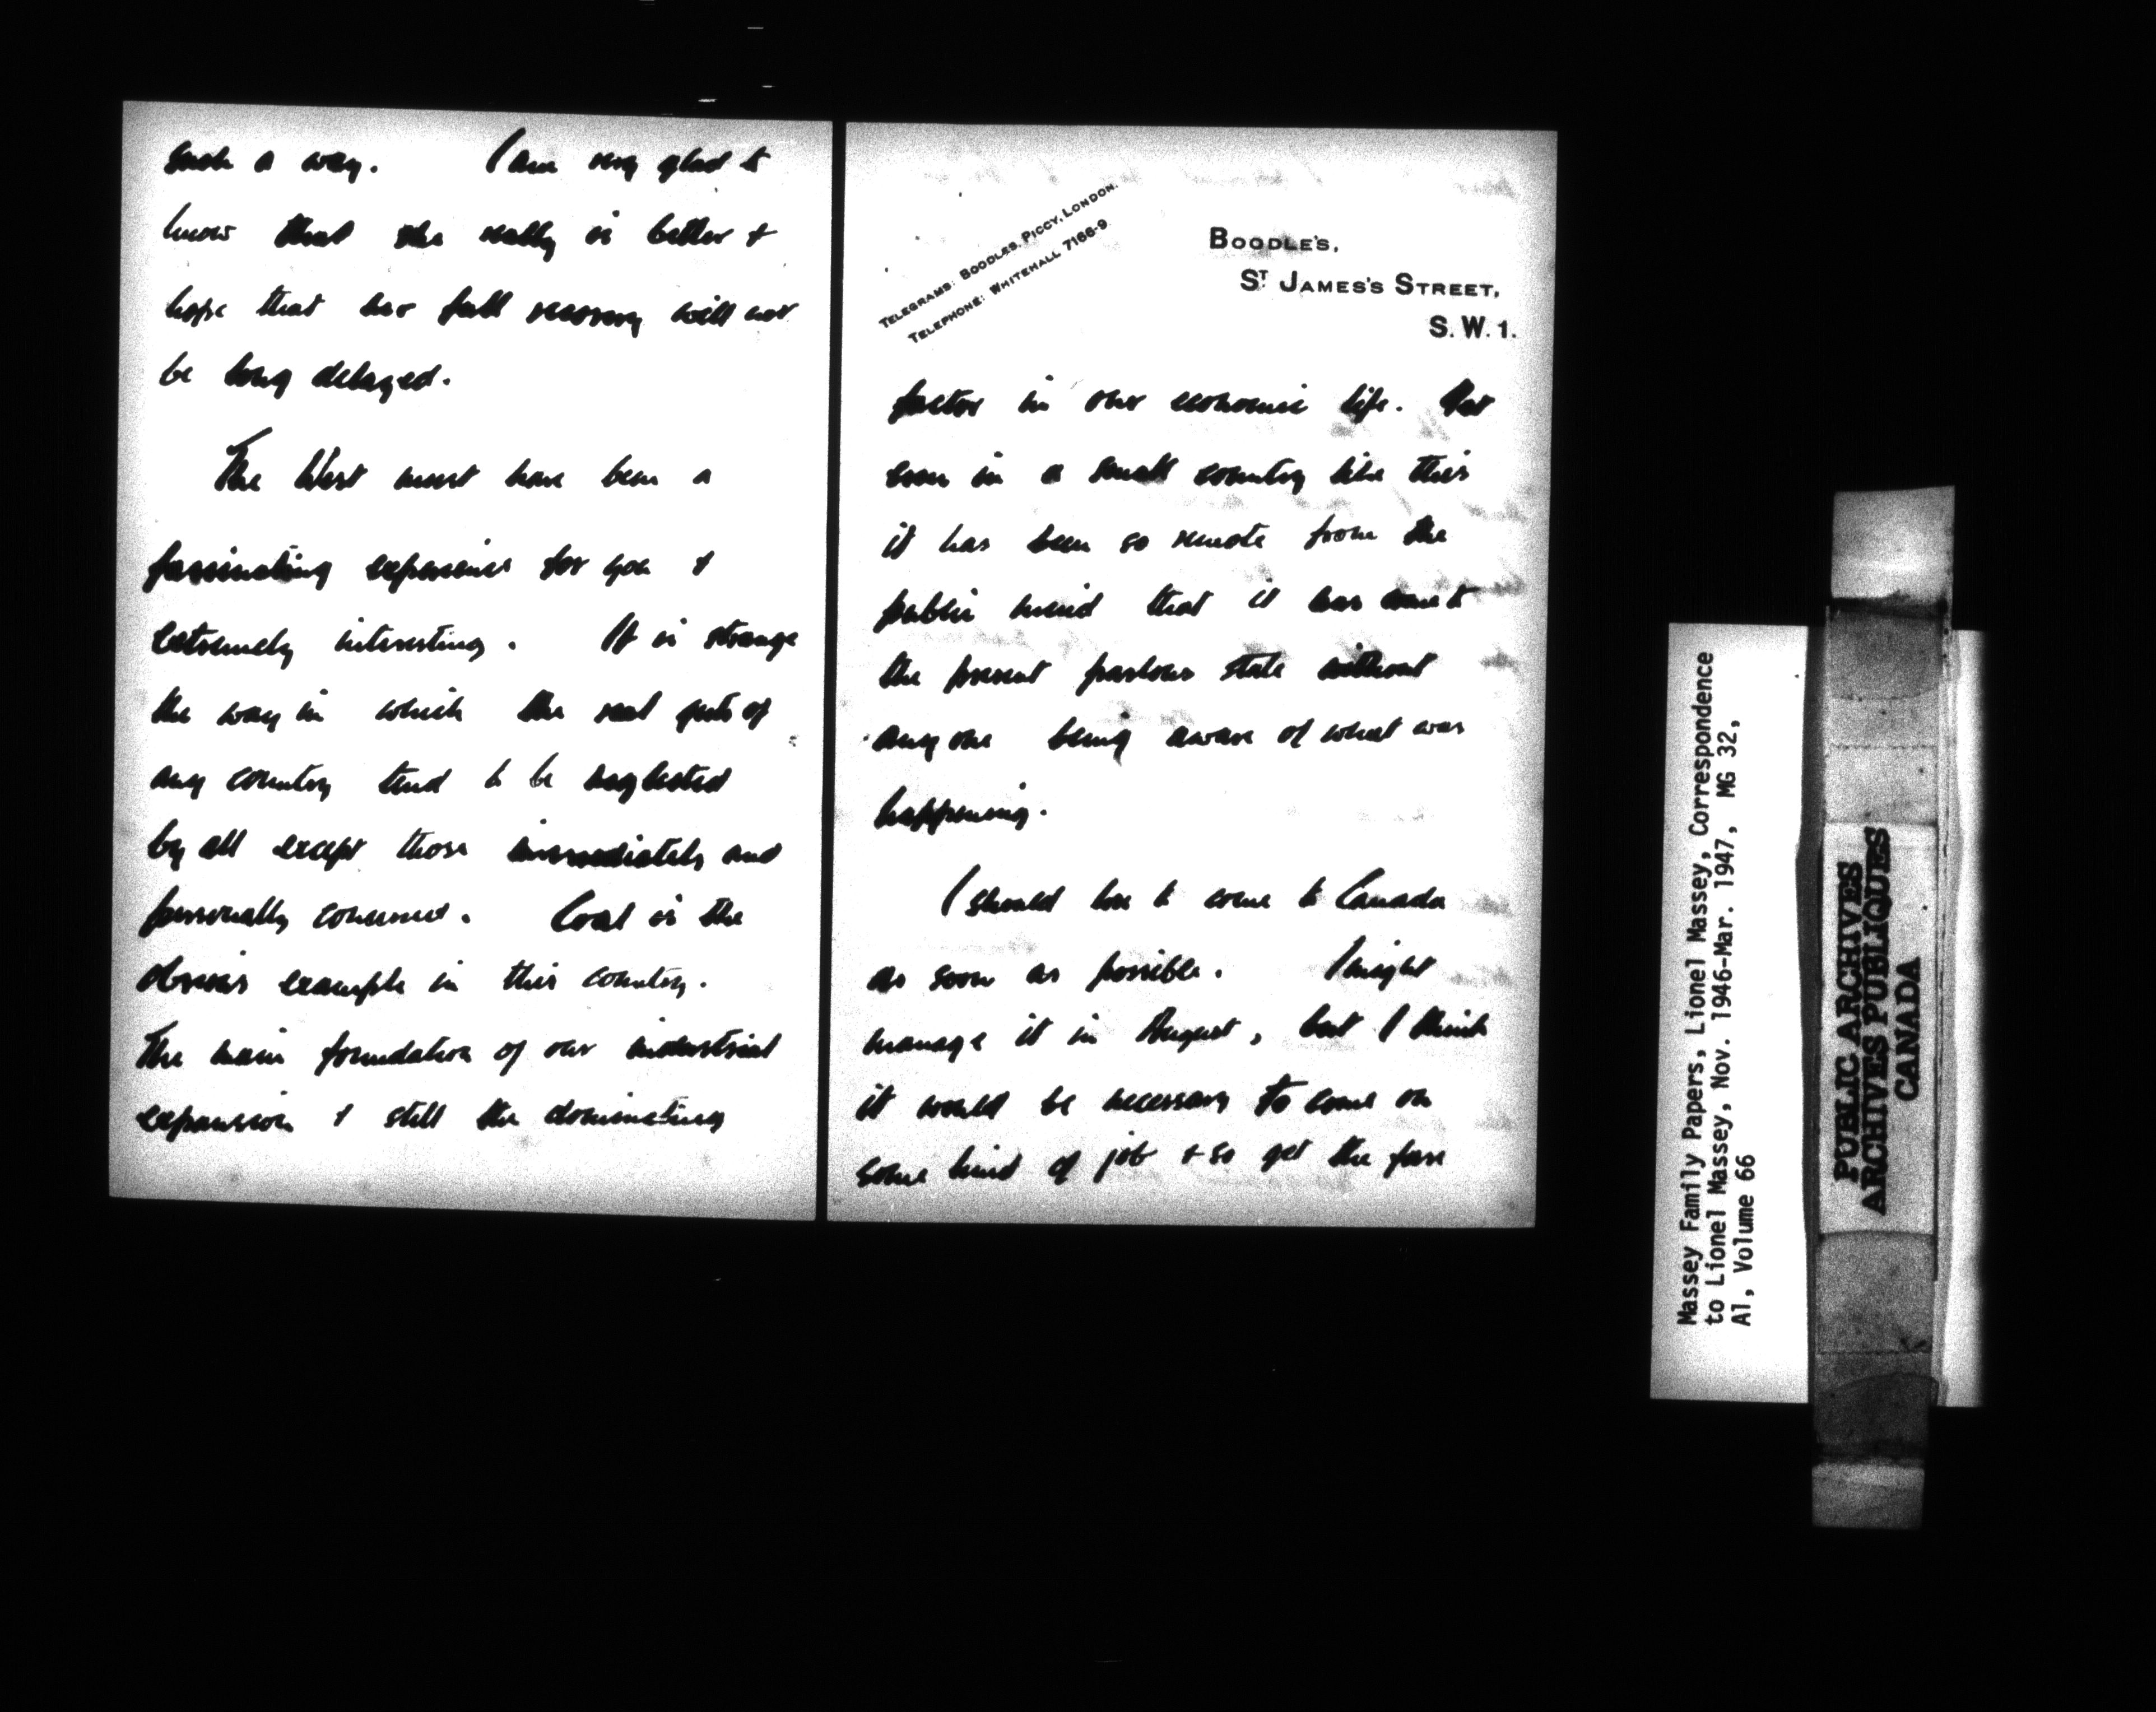 such a way. I am very glad to
know that she really is better &
hope that her full recovery will not
be long delayed.
The West must have been a
fascinating experience for you &
extremely interesting. It is strange
the way in which the real guts of
any country tend to be neglected
by all except those immediately and
personally concerned. Coal is the
obvious example in this country.
The main foundation of our industrial
expansion & still the dominating
TELEGRAMS: BOODLES, PICCY, LONDON.
TELEPHONE: WHITEHALL 7166-9
BOODLE'S,
ST JAMES'S STREET,
S.W.1.
factor in our economic life. Yet
even in a small country like this
it has been so remote from the
public mind that it has come to
the present parlous state without
anyone being aware of what was
happening.
I should love to come to Canada
as soon as possible. I might
manage it in August, but I think
it would be necessary to come on
some kind of job & so get the fare
Massey Family Papers, Lionel Massey, Correspondence
to Lionel Massey, Nov. 1946-Mar. 1947, MG 32,
A1, Volume 66
PUBLIC ARCHIVES
ARCHIVES PUBLIQUES
CANADA